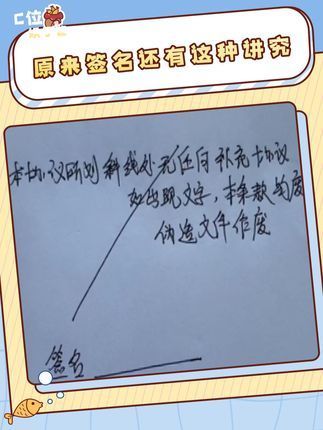 C位
原来签名还有这种讲究
本协议所划斜线处无任何补充协议
如出现文字，本条款均废
伪造文件作废
签名